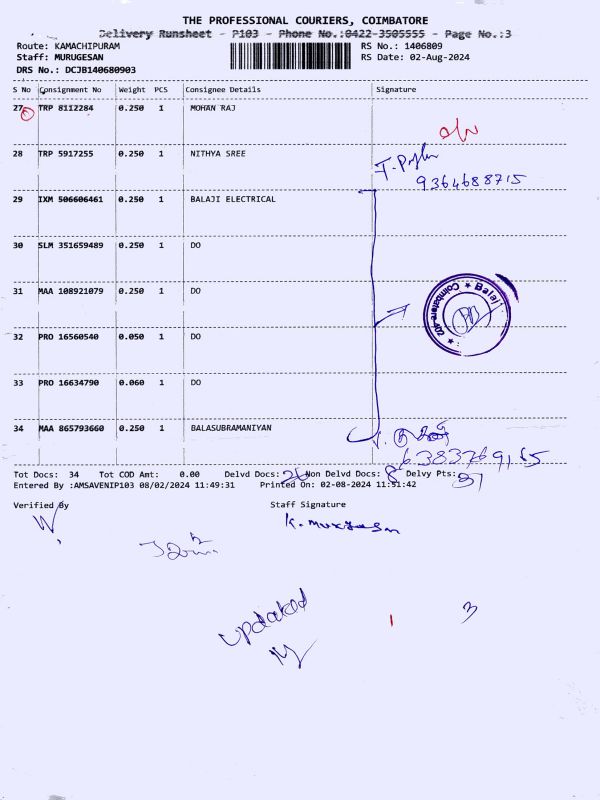 THE PROFESSIONAL COURIERS, COIMBATORE
Delivery Runsheet - P103 - Phone No.:0422-3505555 - Page No.:3
Route: KAMACHIPURAM RS No.: 1406809
Staff: MURUGESAN RS Date: 02-Aug-2024
DRS No.: DCJB140680903
S No Consignment No Weight PCS Consignee Details Signature
27 TRP 8112284 0.250 1 MOHAN RAJ
28 TRP 5917255 0.250 1 NITHYA SREE
9364688715
29 IXM 506606461 0.250 1 BALAJI ELECTRICAL
30 SLM 351659489 0.250 1 DO
31 MAA 108921079 0.250 1 DO
32 PRO 16560540 0.050 1 DO
33 PRO 16634790 0.060 1 DO
34 MAA 865793660 0.250 1 BALASUBRAMANIYAN
Tot Docs: 34 Tot COD Amt: 0.00 Delvd Docs: Non Delvd Docs: 8 Delvy Pts:
Entered By :AMSAVENIP103 08/02/2024 11:49:31 Printed On: 02-08-2024 11:51:42
Verified By Staff Signature
K. Murugesan
updated
1 3